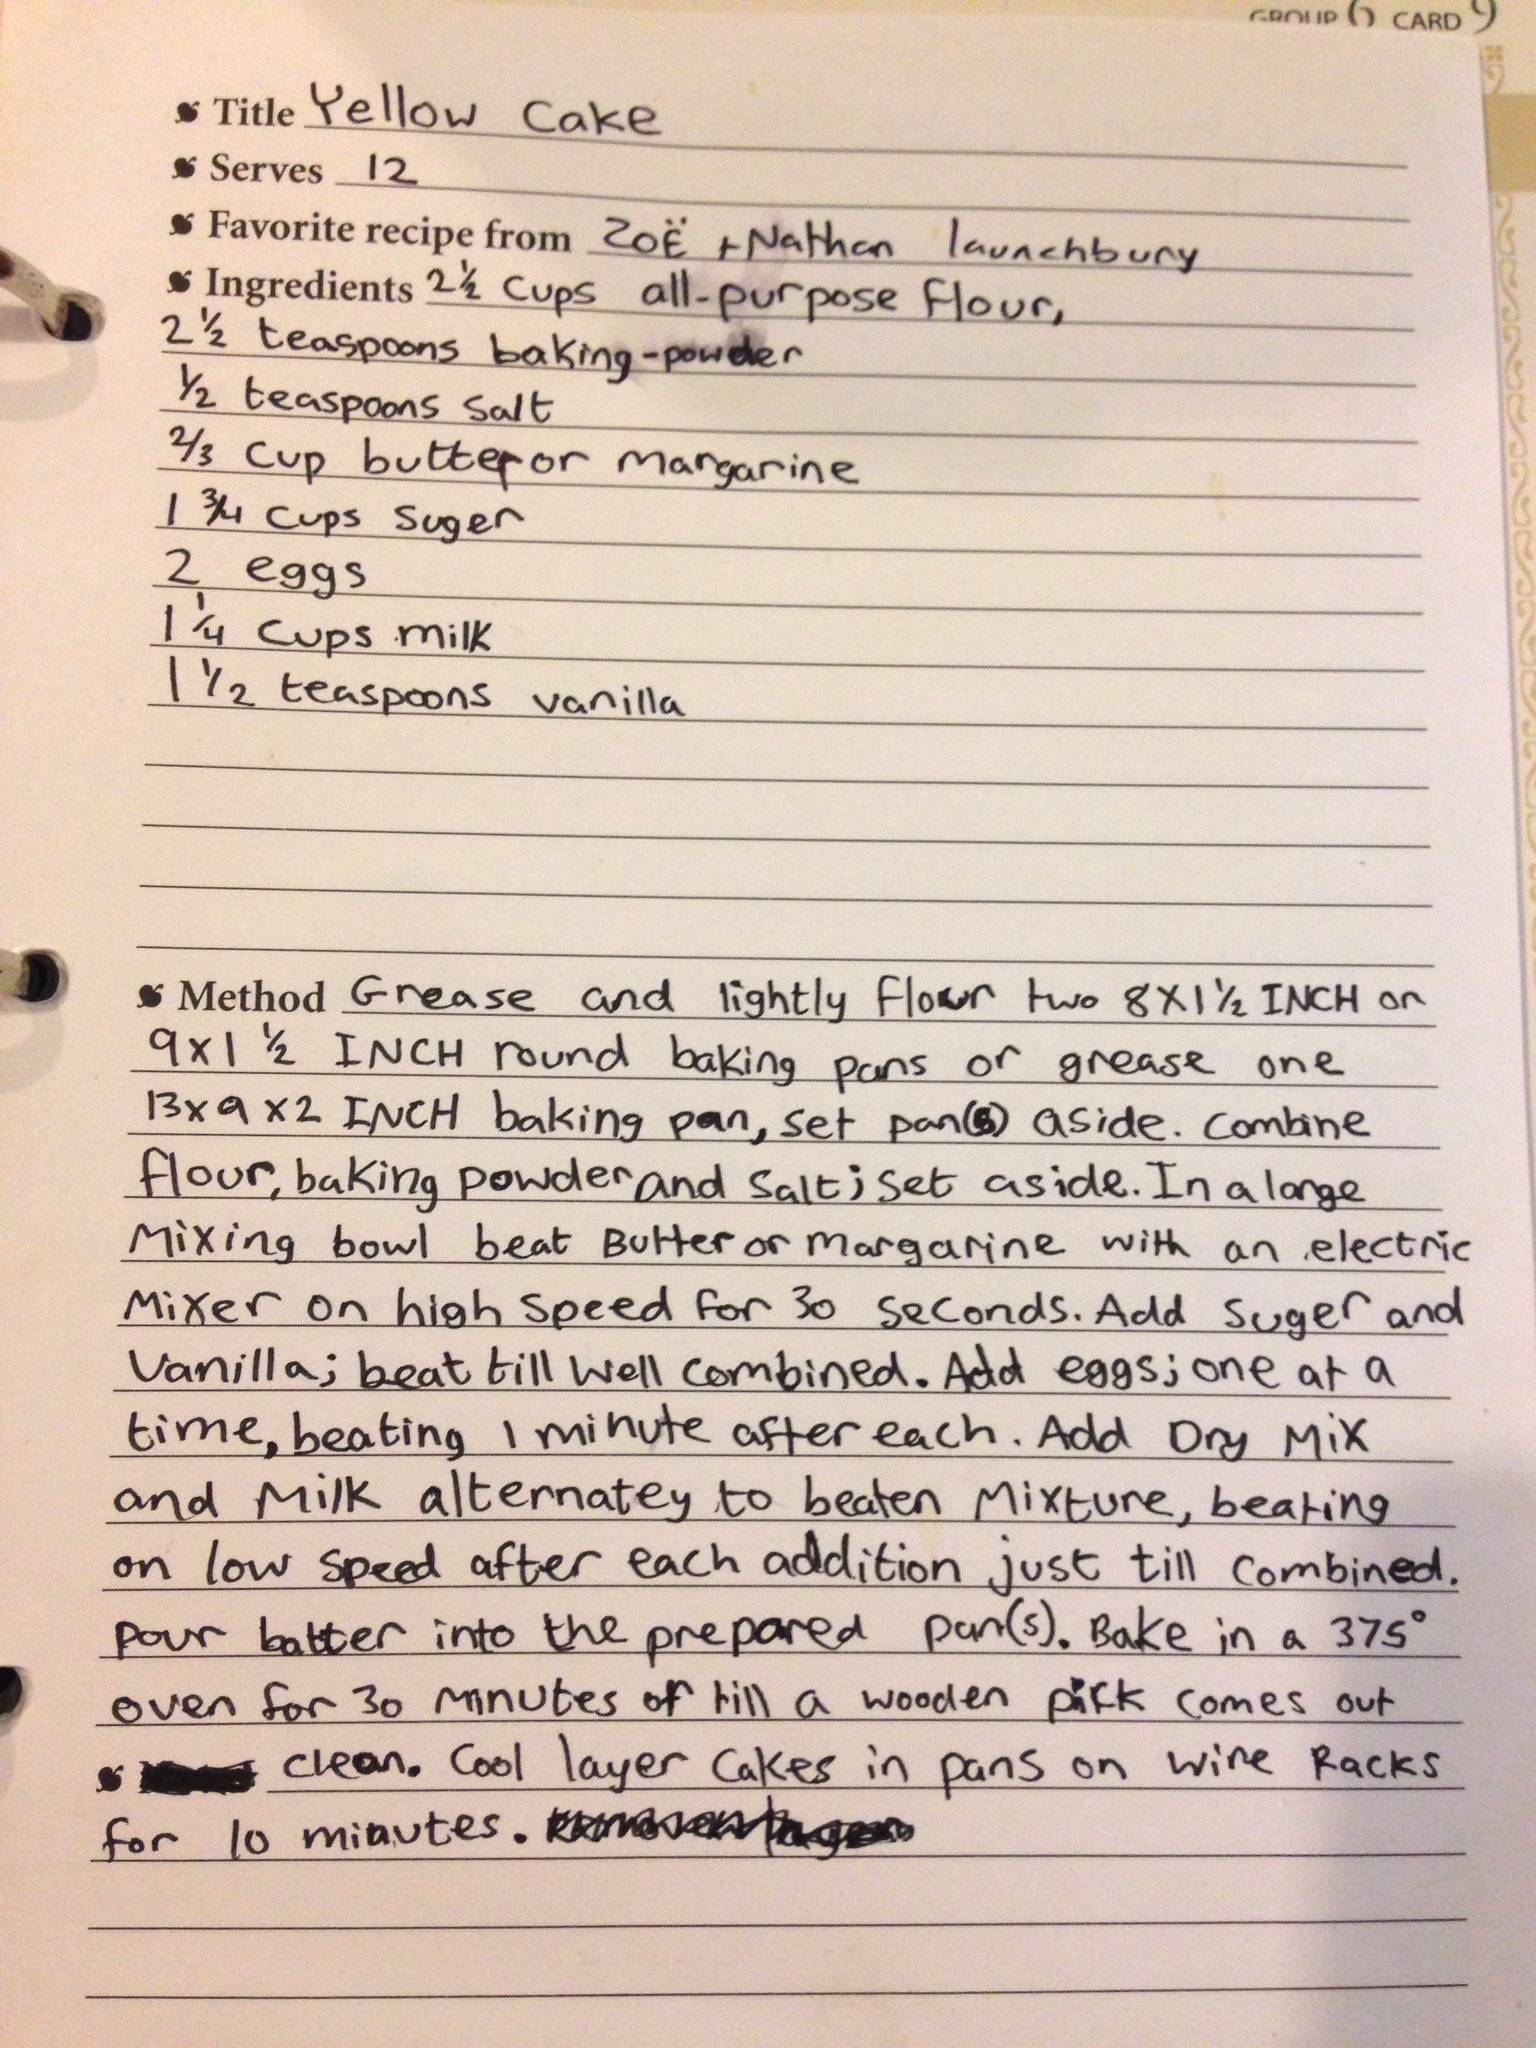 GROUP 6 CARD 9
Title Yellow Cake
Serves 12
Favorite recipe from Zoë + Nathan launchbury
Ingredients 2 1/2 Cups all-purpose flour,
2 1/2 teaspoons baking-powder
1/2 teaspoons salt
2/3 Cup butter or margarine
1 3/4 Cups Suger
2 eggs
1 1/4 Cups milk
1 1/2 teaspoons vanilla
Method Grease and lightly flour two 8X1 1/2 INCH or
9X1 1/2 INCH round baking pans or grease one
13x9x2 INCH baking pan, set pan(s) aside. Combine
flour, baking powder and salt; set aside. In a large
Mixing bowl beat Butter or margarine with an electric
Mixer on high speed for 30 seconds. Add suger and
Vanilla; beat till well combined. Add eggs; one at a
time, beating 1 minute after each. Add Dry Mix
and Milk alternatey to beaten Mixture, beating
on low speed after each addition just till combined.
Pour batter into the prepared pan(s). Bake in a 375°
oven for 30 minutes or till a wooden pick comes out
clean. Cool layer Cakes in pans on wire Racks
for 10 minutes.